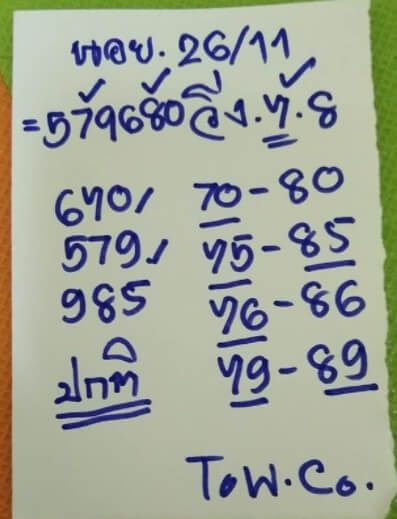 หอย. 26/11
=579680วิ่ง.7.8
670/ 70-80
579./ 75-85
985 76-86
ปกติ 79-89
TOW.Co.